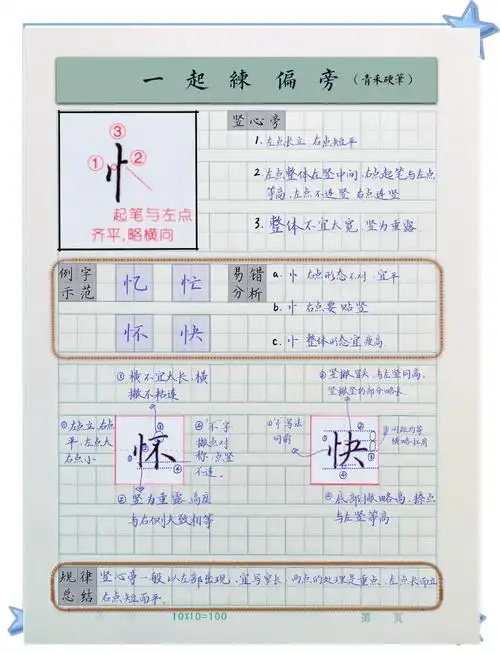 一起練偏旁（青禾硬筆）
③
① ②
起笔与左点
齐平,略横向
竖心旁
1.左点长立 右点短平
2.左点整体在竖中间,右点起笔与左点
等高,左点不连竖 右点连竖
3.整体不宜太宽,竖为垂露
例字
示范
忆 忙
怀 快
易错
分析
a.忄右点形态不对,宜平
b.忄右点要贴竖
c.忄整体形态宜瘦高
③横不宜太长,横
撇不粘连
①左点立,右点
平,左点大
右点小
怀
④"不"字
撇点对
称,点竖
不连
②竖为垂露,高度
与右侧大致相等
①忄写法
同前
快
③间距均等
横略扛肩
④底部撇略高,捺点
与左竖等高
规律
总结
竖心旁一般以左部出现,宜写窄长,两点的处理是重点,左点长而立
右点短而平.
10X10=100
第 页